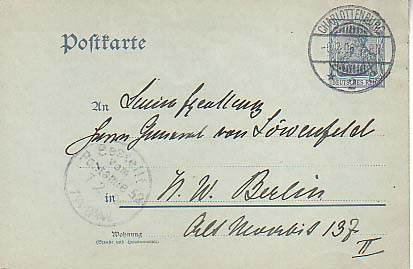 Postkarte
CHARLOTTENBURG
DEUTSCHES REICH
An Seine Exzellenz
Herrn General von Löwenfeld
Bestellt
vom
Postamte
in N. W. Berlin
Wohnung
(Straße und Hausnummer)
Alt Moabit 137
II